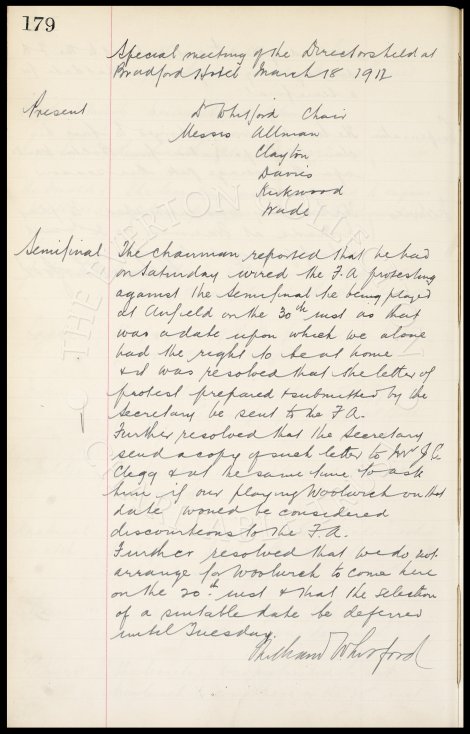 179
Special meeting of the Directors held at
Bradford Hotel March 18 1912
Present
Dr Whitford Chair
Messrs Allman
Clayton
Davies
Kirkwood
Wade
Semifinal
The chairman reported that he had
on Saturday wired the F.A protesting
against the Semifinal tie being played
at Anfield on the 30th inst as that
was a date upon which we alone
had the right to be at home
& it was resolved that the letter of
protest prepared & submitted by the
Secretary be sent to the F.A.
Further resolved that the Secretary
send a copy of such letter to Mr J.C.
Clegg & at the same time to ask
him if our playing Woolwich on that
date would be considered
discourteous to the F.A.
Further resolved that we do not
arrange for Woolwich to come here
on the 20th inst & that the selection
of a suitable date be deferred
until Tuesday.
Whitford
THE EVERTON